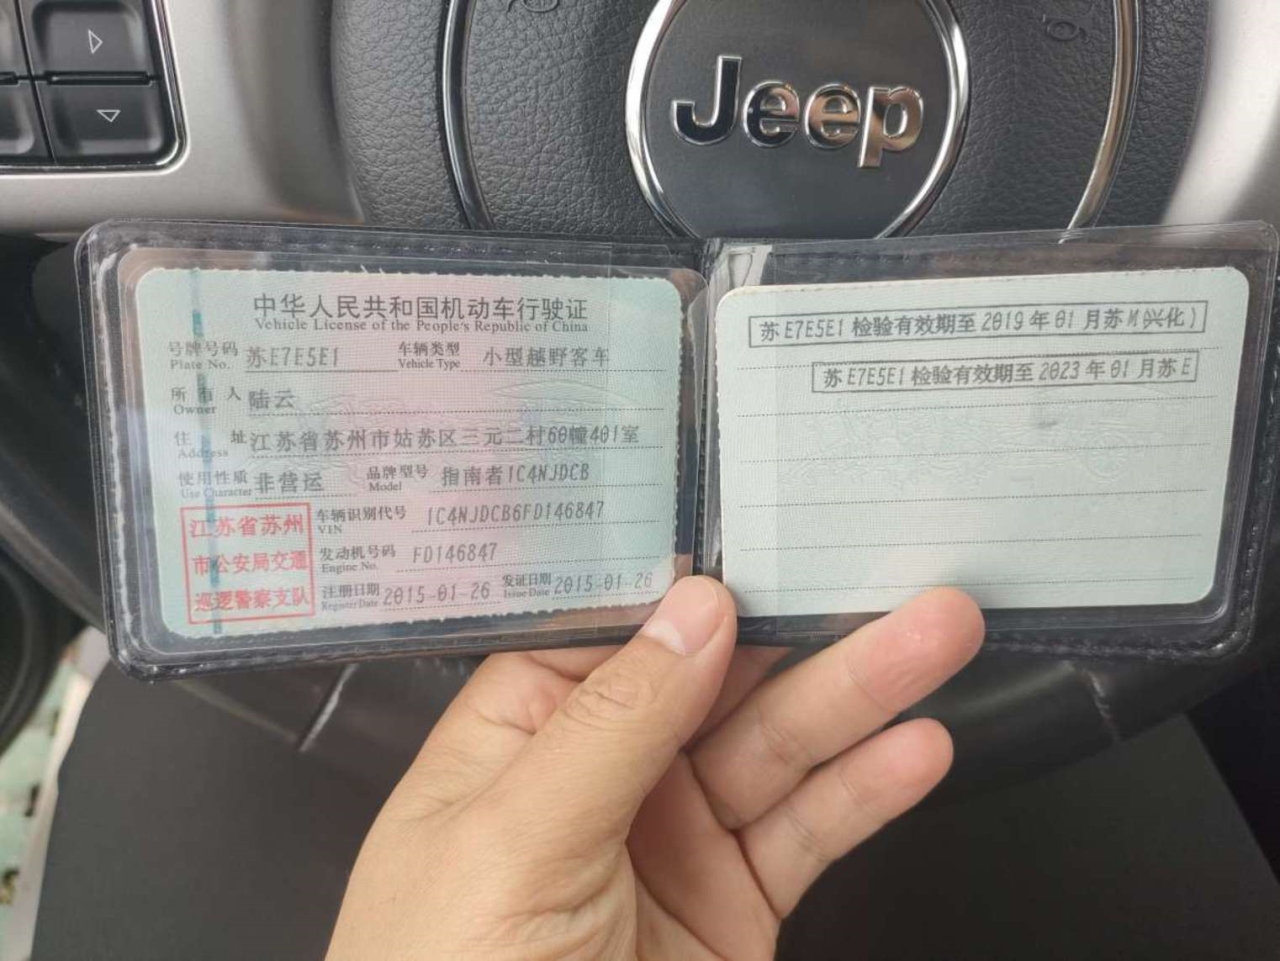 Jeep
中华人民共和国机动车行驶证
Vehicle License of the People's Republic of China
号牌号码 Plate No. 苏E7E5E1 车辆类型 Vehicle Type 小型越野客车
所有人 Owner 陆云
住址 Address 江苏省苏州市姑苏区三元二村60幢401室
使用性质 Use Character 非营运 品牌型号 Model 指南者1C4NJDCB
车辆识别代号 VIN 1C4NJDCB6FD146847
发动机号码 Engine No. FD146847
注册日期 Register Date 2015-01-26 发证日期 Issue Date 2015-01-26
江苏省苏州
市公安局交通
巡逻警察支队
苏E7E5E1检验有效期至2019年01月苏M(兴化)
苏E7E5E1检验有效期至2023年01月苏E